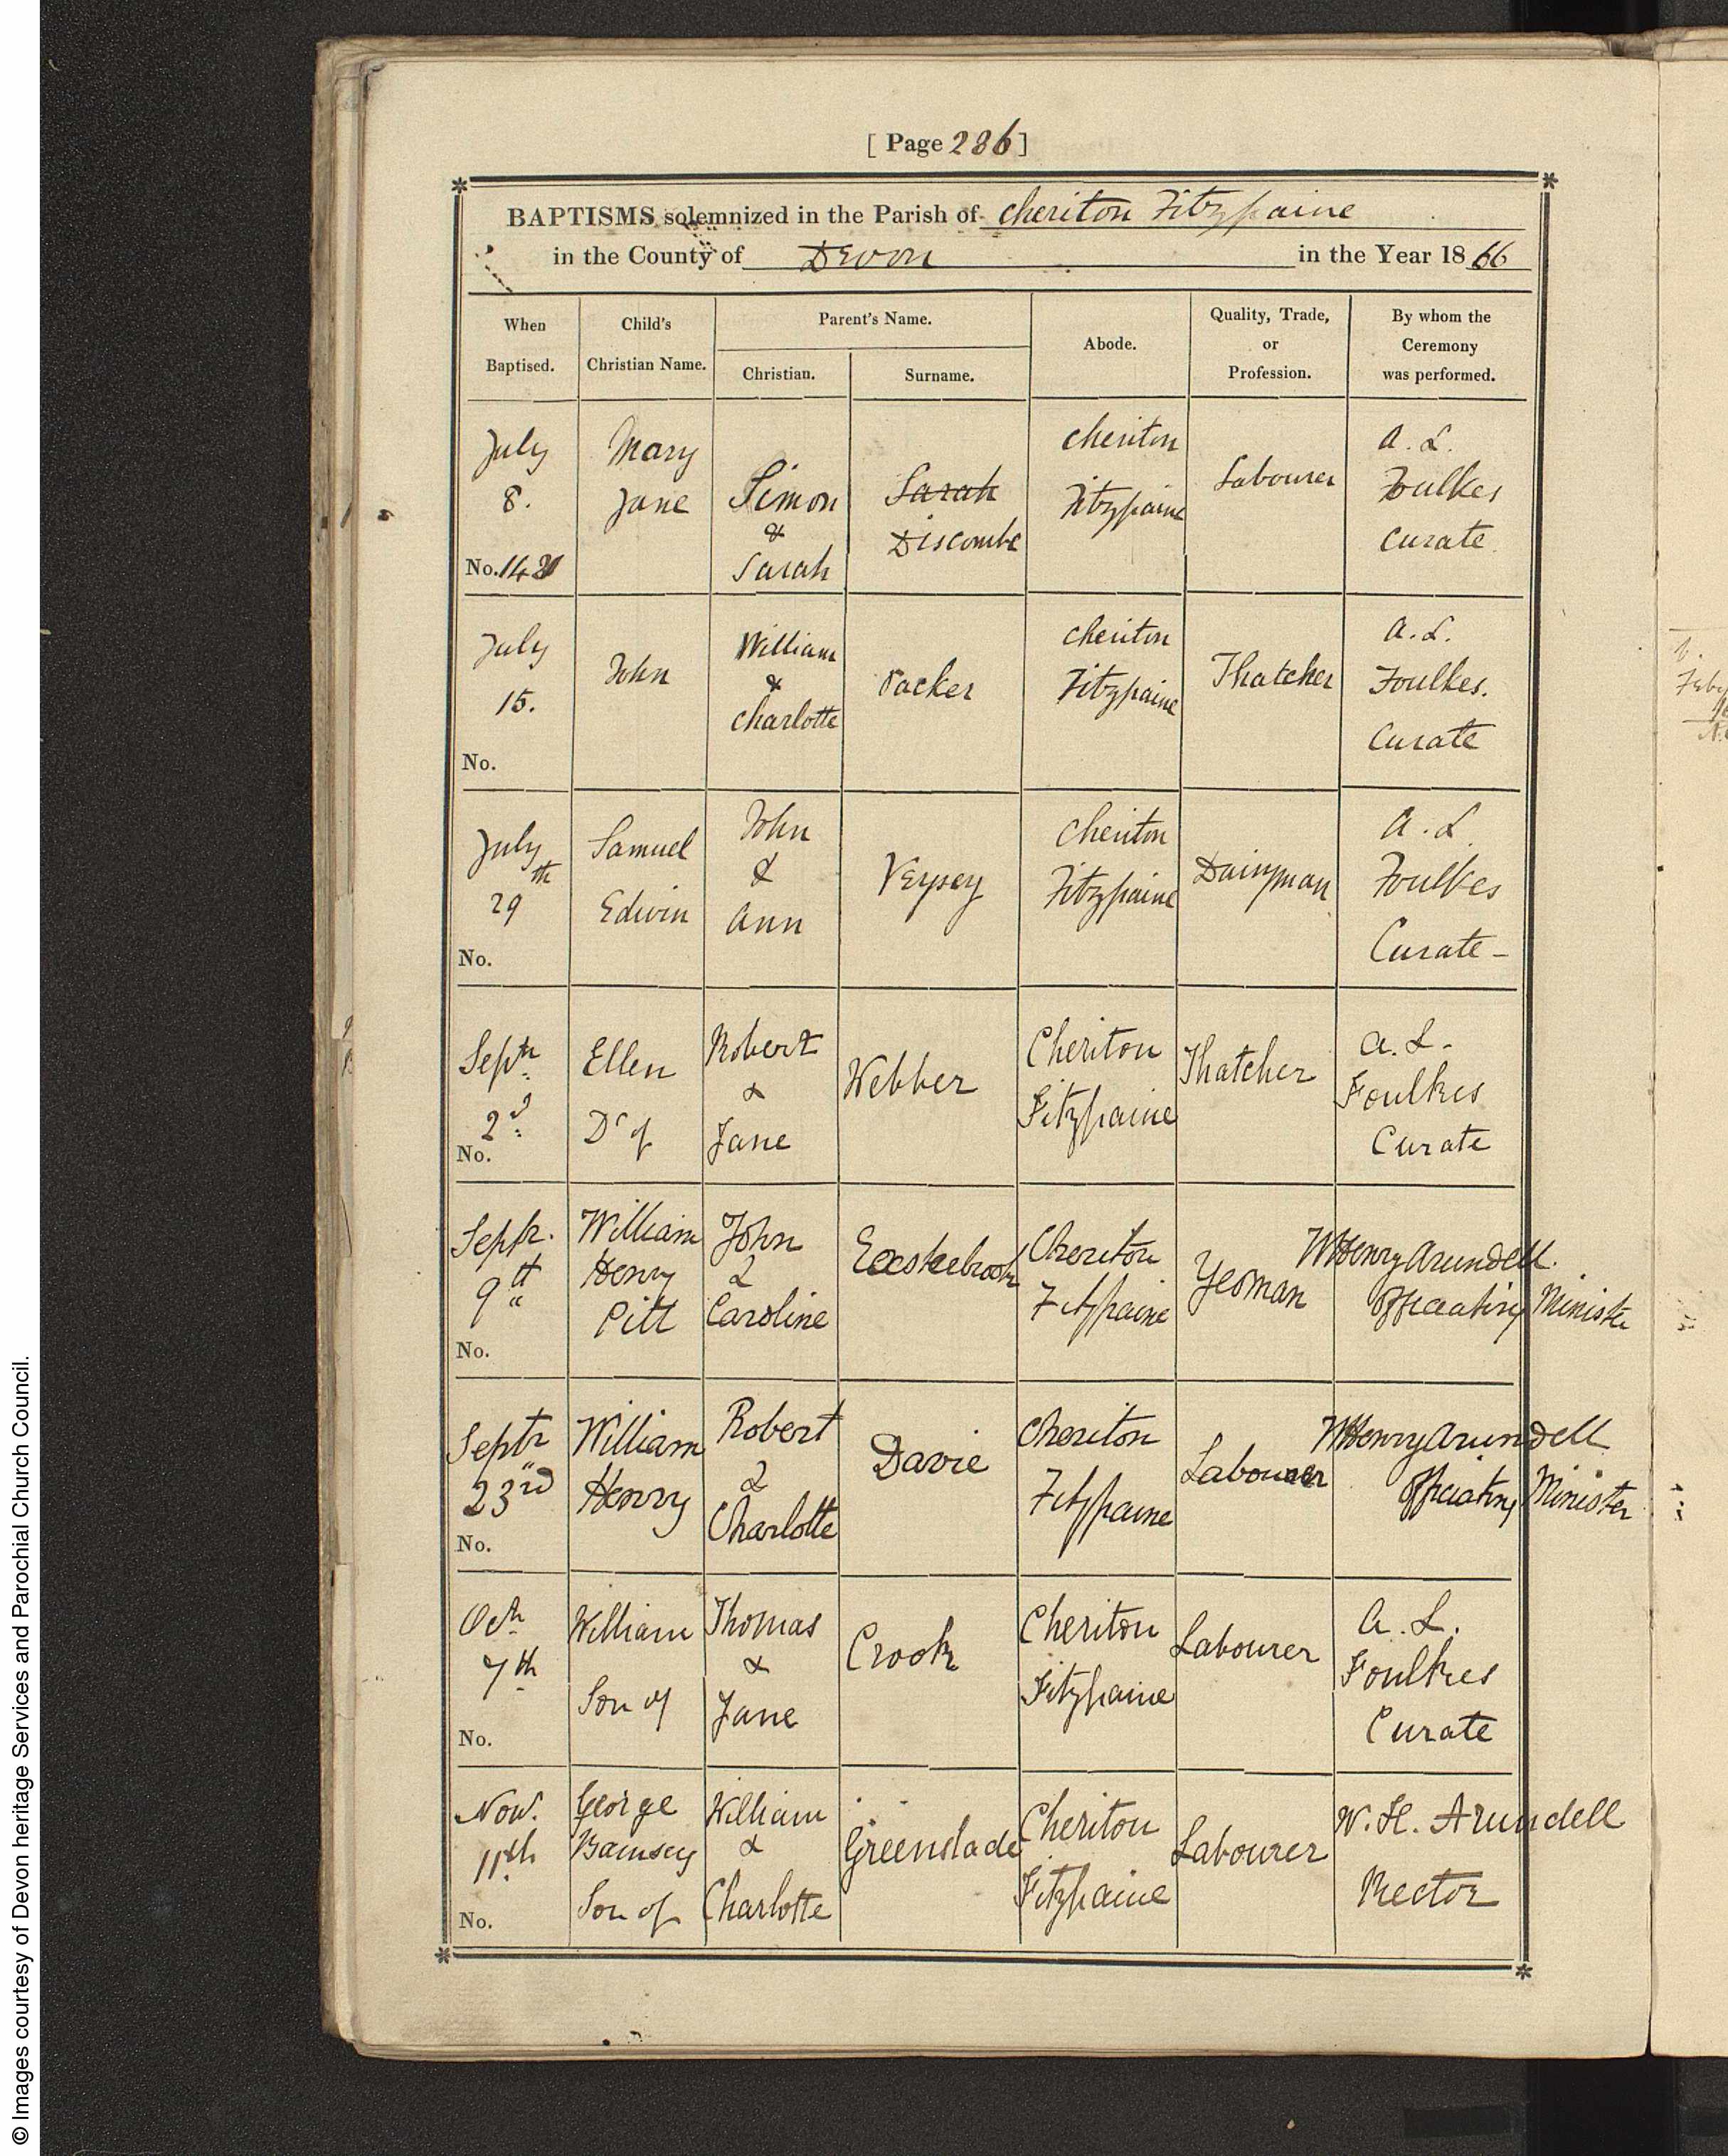 [ Page 286 ]
BAPTISMS solemnized in the Parish of Cheriton Fitzpaine
in the County of Devon in the Year 18 66
When Baptised.
Child's Christian Name.
Parent's Name.
Christian.
Surname.
Abode.
Quality, Trade, or Profession.
By whom the Ceremony was performed.
July 8.
No. 1421
Mary Jane
Simon & Sarah
Sarah Discombe
Cheriton Fitzpaine
Labourer
A. L. Foulkes Curate
July 15.
No.
John
William & Charlotte
Packer
Cheriton Fitzpaine
Thatcher
A. L. Foulkes. Curate
July 29th
No.
Samuel Edwin
John & Ann
Veysey
Cheriton Fitzpaine
Dairyman
A. L Foulkes Curate -
Septr. 2d.
No.
Ellen Dr of
Robert & Jane
Webber
Cheriton Fitzpaine
Thatcher
A. L. Foulkes Curate
Septr. 9th
No.
William Henry Pitt
John & Caroline
Cheriton Fitzpaine
Yeoman
WHenry Arundell. Officiating Minister
Septr 23rd
No.
William Henry
Robert & Charlotte
Davie
Cheriton Fitzpaine
Labourer
WHenry Arundell Officiating Minister
Octr. 7th
No.
William Son of
Thomas & Jane
Crook
Cheriton Fitzpaine
Labourer
A. L. Foulkes Curate
Novr. 11th.
No.
George Son of
William & Charlotte
Greenslade
Cheriton Fitzpaine
Labourer
W. H. Arundell Rector
© Images courtesy of Devon heritage Services and Parochial Church Council.